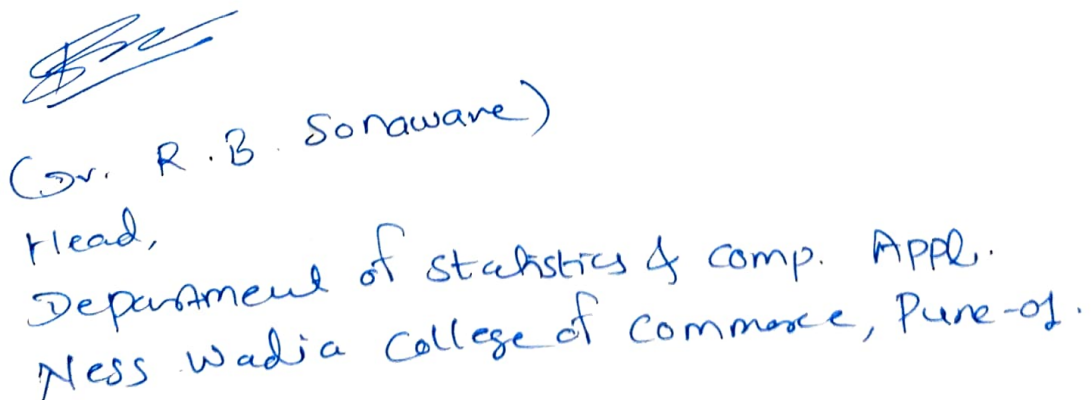 (Dr. R.B. Sonaware)
Head,
Department of Statistics & comp. Appl.
Ness Wadia College of Commerce, Pune-01.